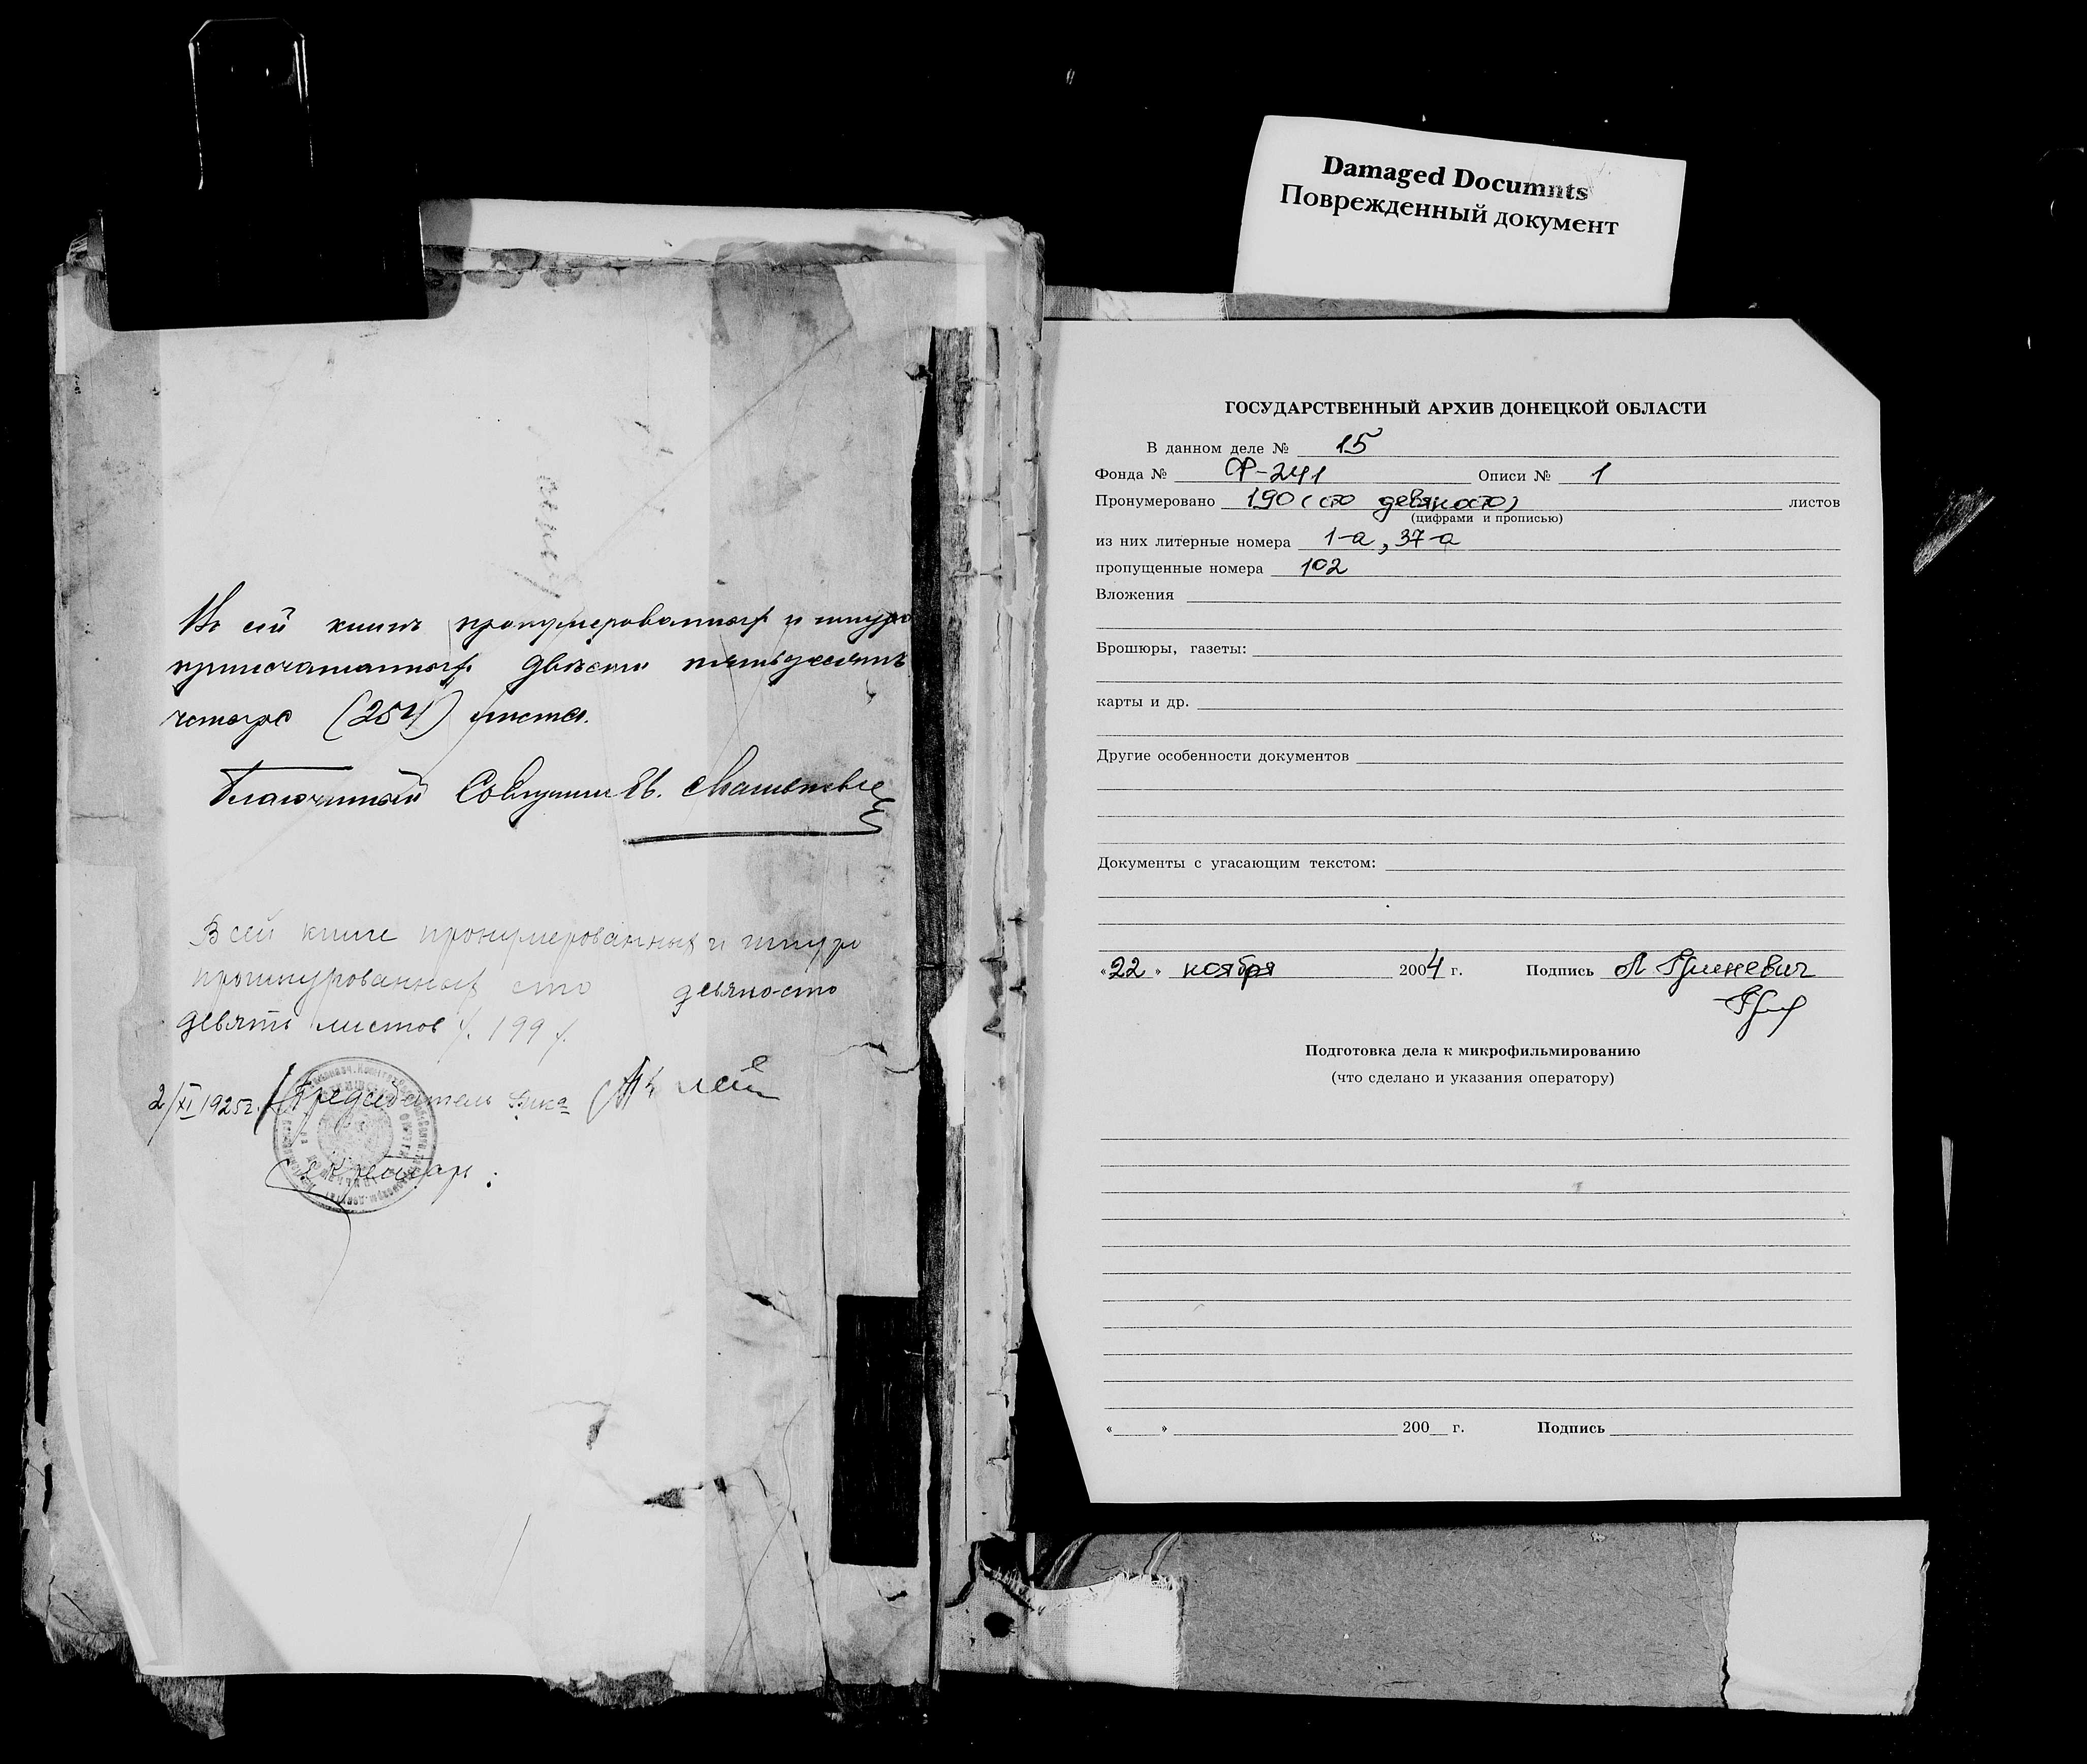 Damaged Documnts
Поврежденный документ
Въ сей книгѣ пронумерованныхъ и шнуро
припечатанныхъ двѣсти пятьдесятъ
четыре (254) листа.
Благочинный Священникъ
В сей книге пронумерованных и шнуро
прошнурованных сто девяносто
девять листов /. 199 /.
2/XI 1925 г. Председатель Вика
Секретарь:
ГОСУДАРСТВЕННЫЙ АРХИВ ДОНЕЦКОЙ ОБЛАСТИ
В данном деле № 15
Фонда № Ф-241 Описи № 1
Пронумеровано 190 (сто девяносто) листов
(цифрами и прописью)
из них литерные номера 1-а, 37-а
пропущенные номера 102
Вложения
Брошюры, газеты:
карты и др.
Другие особенности документов
Документы с угасающим текстом:
«22» ноября 2004 г. Подпись
Подготовка дела к микрофильмированию
(что сделано и указания оператору)
« » 200 г. Подпись